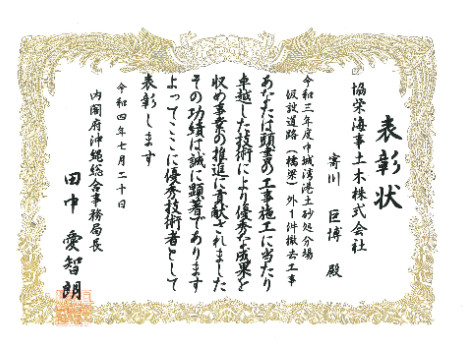 表彰状
協栄海事土木株式会社
寄川 巨博 殿
令和三年度中城湾港土砂処分場
仮設道路(橋梁)外1件撤去工事
あなたは頭書の工事施工に当たり
卓越した技術により優秀な成果を
収め事業の推進に貢献されました
その功績は誠に顕著であります
よってここに優秀技術者として
表彰します
令和四年七月二十日
内閣府沖縄総合事務局長
田中 愛智朗